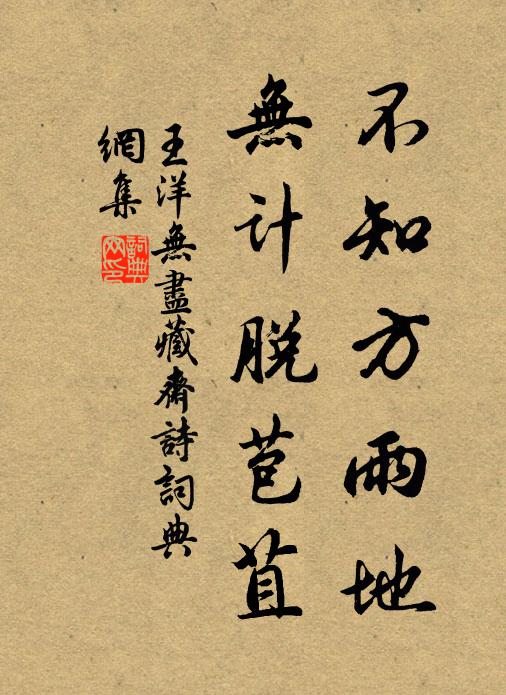 不知方雨地
無计脱苞苴
王洋無盡藏齋詩詞典
網集
詞典网印